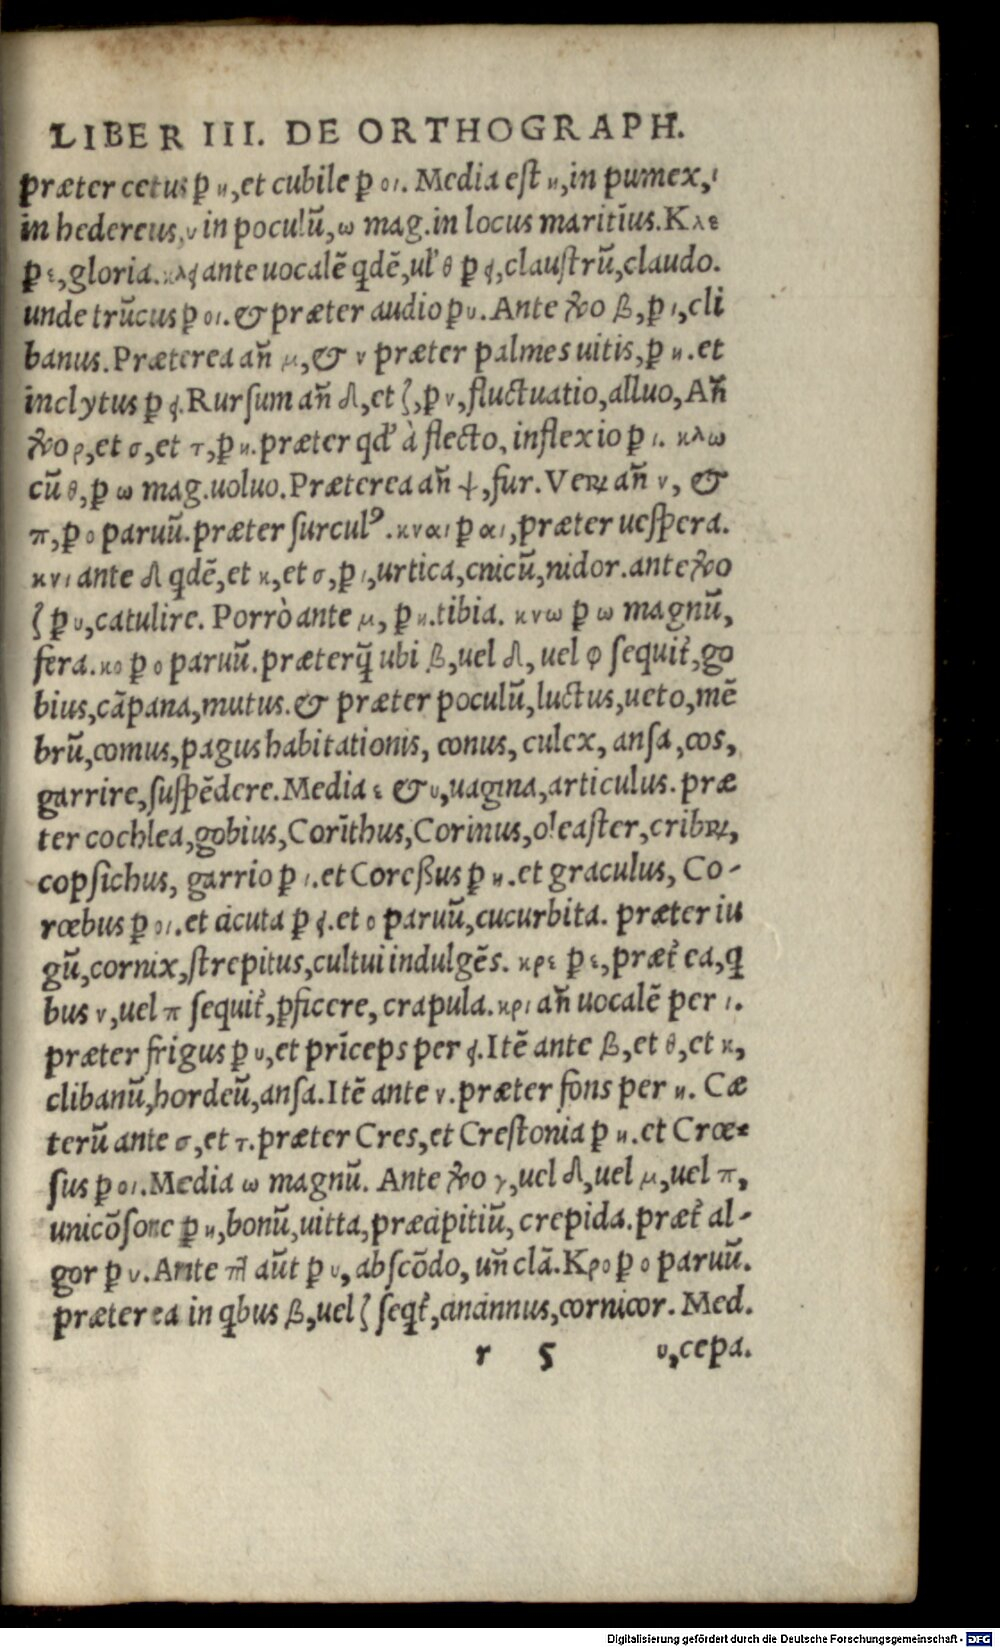 LIBER III. DE ORTHOGRAPH.
præter cetus ꝑ η, et cubile ꝑ οι. Media est η, in pumex, ι
in hedereus, υ in poculũ, ω mag. in locus maritĩus. Κλε
ꝑ ε, gloria. κλᾳ ante uocalẽ qdẽ, ul' θ ꝑ ᾳ, claustrũ, claudo.
unde trũcus ꝑ οι. & præter audio ꝑ υ. Ante ꝟo β, ꝑ ι, cli
banus. Præterea añ μ, & ν præter palmes uitis, ꝑ η. et
inclytus ꝑ ᾳ. Rursum añ δ, et ζ, ꝑ υ, fluctuatio, alluo, Añ
ꝟo ρ, et σ, et τ, ꝑ η. præter qd' à flecto, inflexio ꝑ ι. κλω
cũ θ, ꝑ ω mag. uoluo. Præterea añ ψ, fur. Veꝝ añ ν, &
π, ꝑ ο paruũ. præter surculꝰ. κναι ꝑ αι, præter uespera.
κνι ante δ qdẽ, et κ, et σ, ꝑ ι, urtica, cnicũ, nidor. ante ꝟo
ζ ꝑ υ, catulire. Porrò ante μ, ꝑ η. tibia. κνω ꝑ ω magnũ,
fera. κο ꝑ ο paruũ. præterq̃ ubi β, uel δ, uel φ sequit᷑, go
bius, cãpana, mutus. & præter poculũ, luctus, ueto, mẽ
brũ, comus, pagus habitationis, conus, culex, ansa, cos,
garrire, suspẽdere. Media ε & υ, uagina, articulus. præ
ter cochlea, gobius, Corĩthus, Corinus, oleaster, cribꝝ,
copsichus, garrio ꝑ ι. et Coreßus ꝑ η. et graculus, Co-
rœbus ꝑ οι. et acuta ꝑ ᾳ. et ο paruũ, cucurbita. præter iu
gũ, cornix, strepitus, cultui indulgẽs. κρε ꝑ ε, præt᷑ ea, q
bus ν, uel π sequit᷑, ꝑficere, crapula. κρι añ uocalẽ per ι.
præter frigus ꝑ υ, et prĩceps per ᾳ. Itẽ ante β, et θ, et κ,
clibanũ, hordeũ, ansa. Itẽ ante ν. præter fons per η. Cæ
terũ ante σ, et τ. præter Cres, et Crestonia ꝑ η. et Crœ-
sus ꝑ οι. Media ω magnũ. Ante ꝟo γ, uel δ, uel μ, uel π,
unicõsone ꝑ η, bonũ, uitta, præcipitiũ, crepida. præt᷑ al-
gor ꝑ υ. Ante πl aũt ꝑ υ, abscõdo, uñ clã. Κρο ꝑ ο paruũ.
præterea in qbus β, uel ζ seqt᷑, cinannus, cornicor. Med.
r 5 υ, cepa.
Digitalisierung gefördert durch die Deutsche Forschungsgemeinschaft - DFG